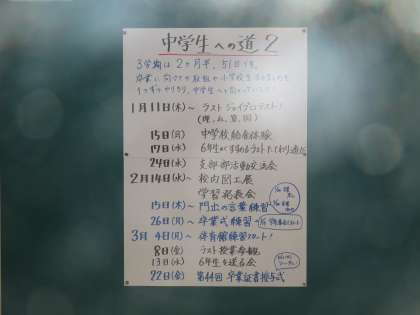 中学生への道 2
3学期は2ヶ月半、51日です。
卒業に向けての取組や小学校生活のまとめを
しっかりやりきり、中学生へと向かっていこう!
1月11日(木)～ ラストジョイプロテスト!
(理、社、算、国)
15日(月) 中学校給食体験
17日(水) 6年生
24日(水) 支部部活動交流会
2月14日(水)～ 校内図工展
学習発表会
15日(木)～ 門出の言葉練習
26日(月)～ 卒業式練習
3月4日(月)～ 体育館練習スタート!
8日(金) ラスト授業参観
13日(水) 6年生を送る会
22日(金) 第44回 卒業証書授与式